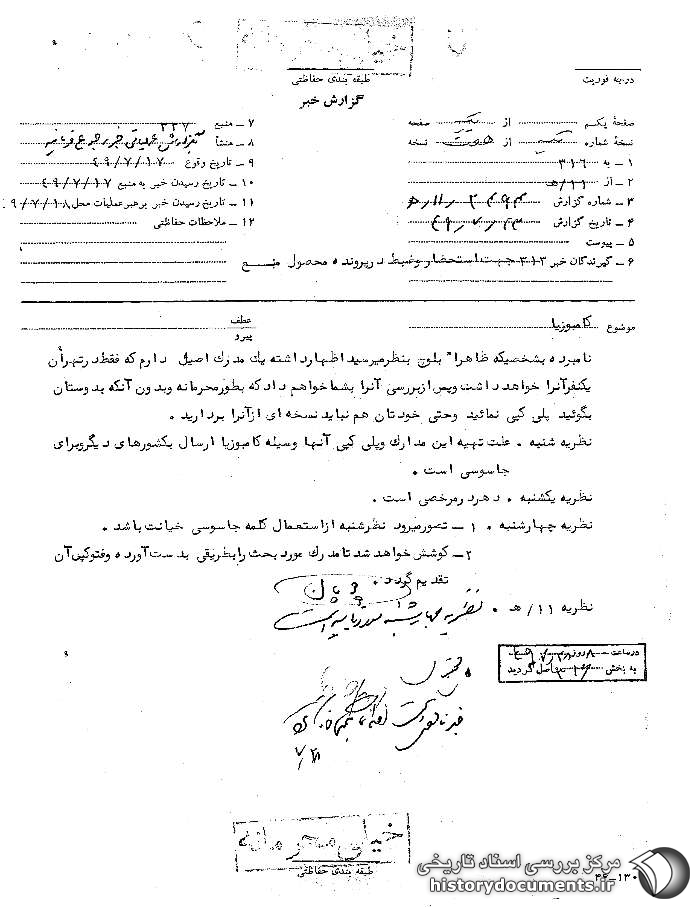 خیلی محرمانه
طبقه بندی حفاظتی
درجه فوریت
گزارش خبر
صفحه یکم از یک صفحه
نسخه شماره یک از هفت نسخه
۱ - به ۳۱۶
۲ - از ۱۱/ه‍
۳ - شماره گزارش
۴ - تاریخ گزارش
۵ - پیوست
۶ - گیرندگان خبر ۳۱۲ جهت استحضار وضبط درپرونده محصول منبع
۷ - منبع ۳۳۷
۸ - منشأ
۹ - تاریخ وقوع ۴۹/۷/۱۷
۱۰ - تاریخ رسیدن خبر به منبع ۴۹/۷/۱۷
۱۱ - تاریخ رسیدن خبر برهبرعملیات محل ۹/۷/۱۸
۱۲ - ملاحظات حفاظتی
موضوع کامبوزیا
عطف
پیرو
نامبرده بشخصیکه ظاهرا" بلوچ بنظرمیرسید اظهارداشته یك مدرك اصیل دارم که فقط درتهران
یکنفرآنرا خواهد داشت وپس ازبررسی آنرا بشما خواهم داد که بطورمحرمانه وبدون آنکه بدوستان
بگوئید پلی کپی نمائید وحتی خودتان هم نباید نسخه ای ازآنرا بردارید .
نظریه شنبه . علت تهیه این مدارك وپلی کپی آنها وسیله کامبوزیا ارسال بکشورهای دیگروبرای
جاسوسی است .
نظریه یکشنبه . دهرد رمرخصی است .
نظریه چهارشنبه . ۱ - تصورمیرود نظرشنبه ازاستعمال کلمه جاسوسی خیانت باشد .
۲ - کوشش خواهد شد تا مدرك مورد بحث رابطریقی بدست آورده وفتوکپی آن
تقدیم گردد .
نظریه ۱۱/ه‍ . نظریه چهارشنبه مورد تایید است
درساعت ۸ روز
به بخش ۳۱۶ واصل گردید
۷/۲۸
خیلی محرمانه
طبقه بندی حفاظتی
۳۶-۱۳۰
مرکز بررسی اسناد تاریخی
historydocuments.ir